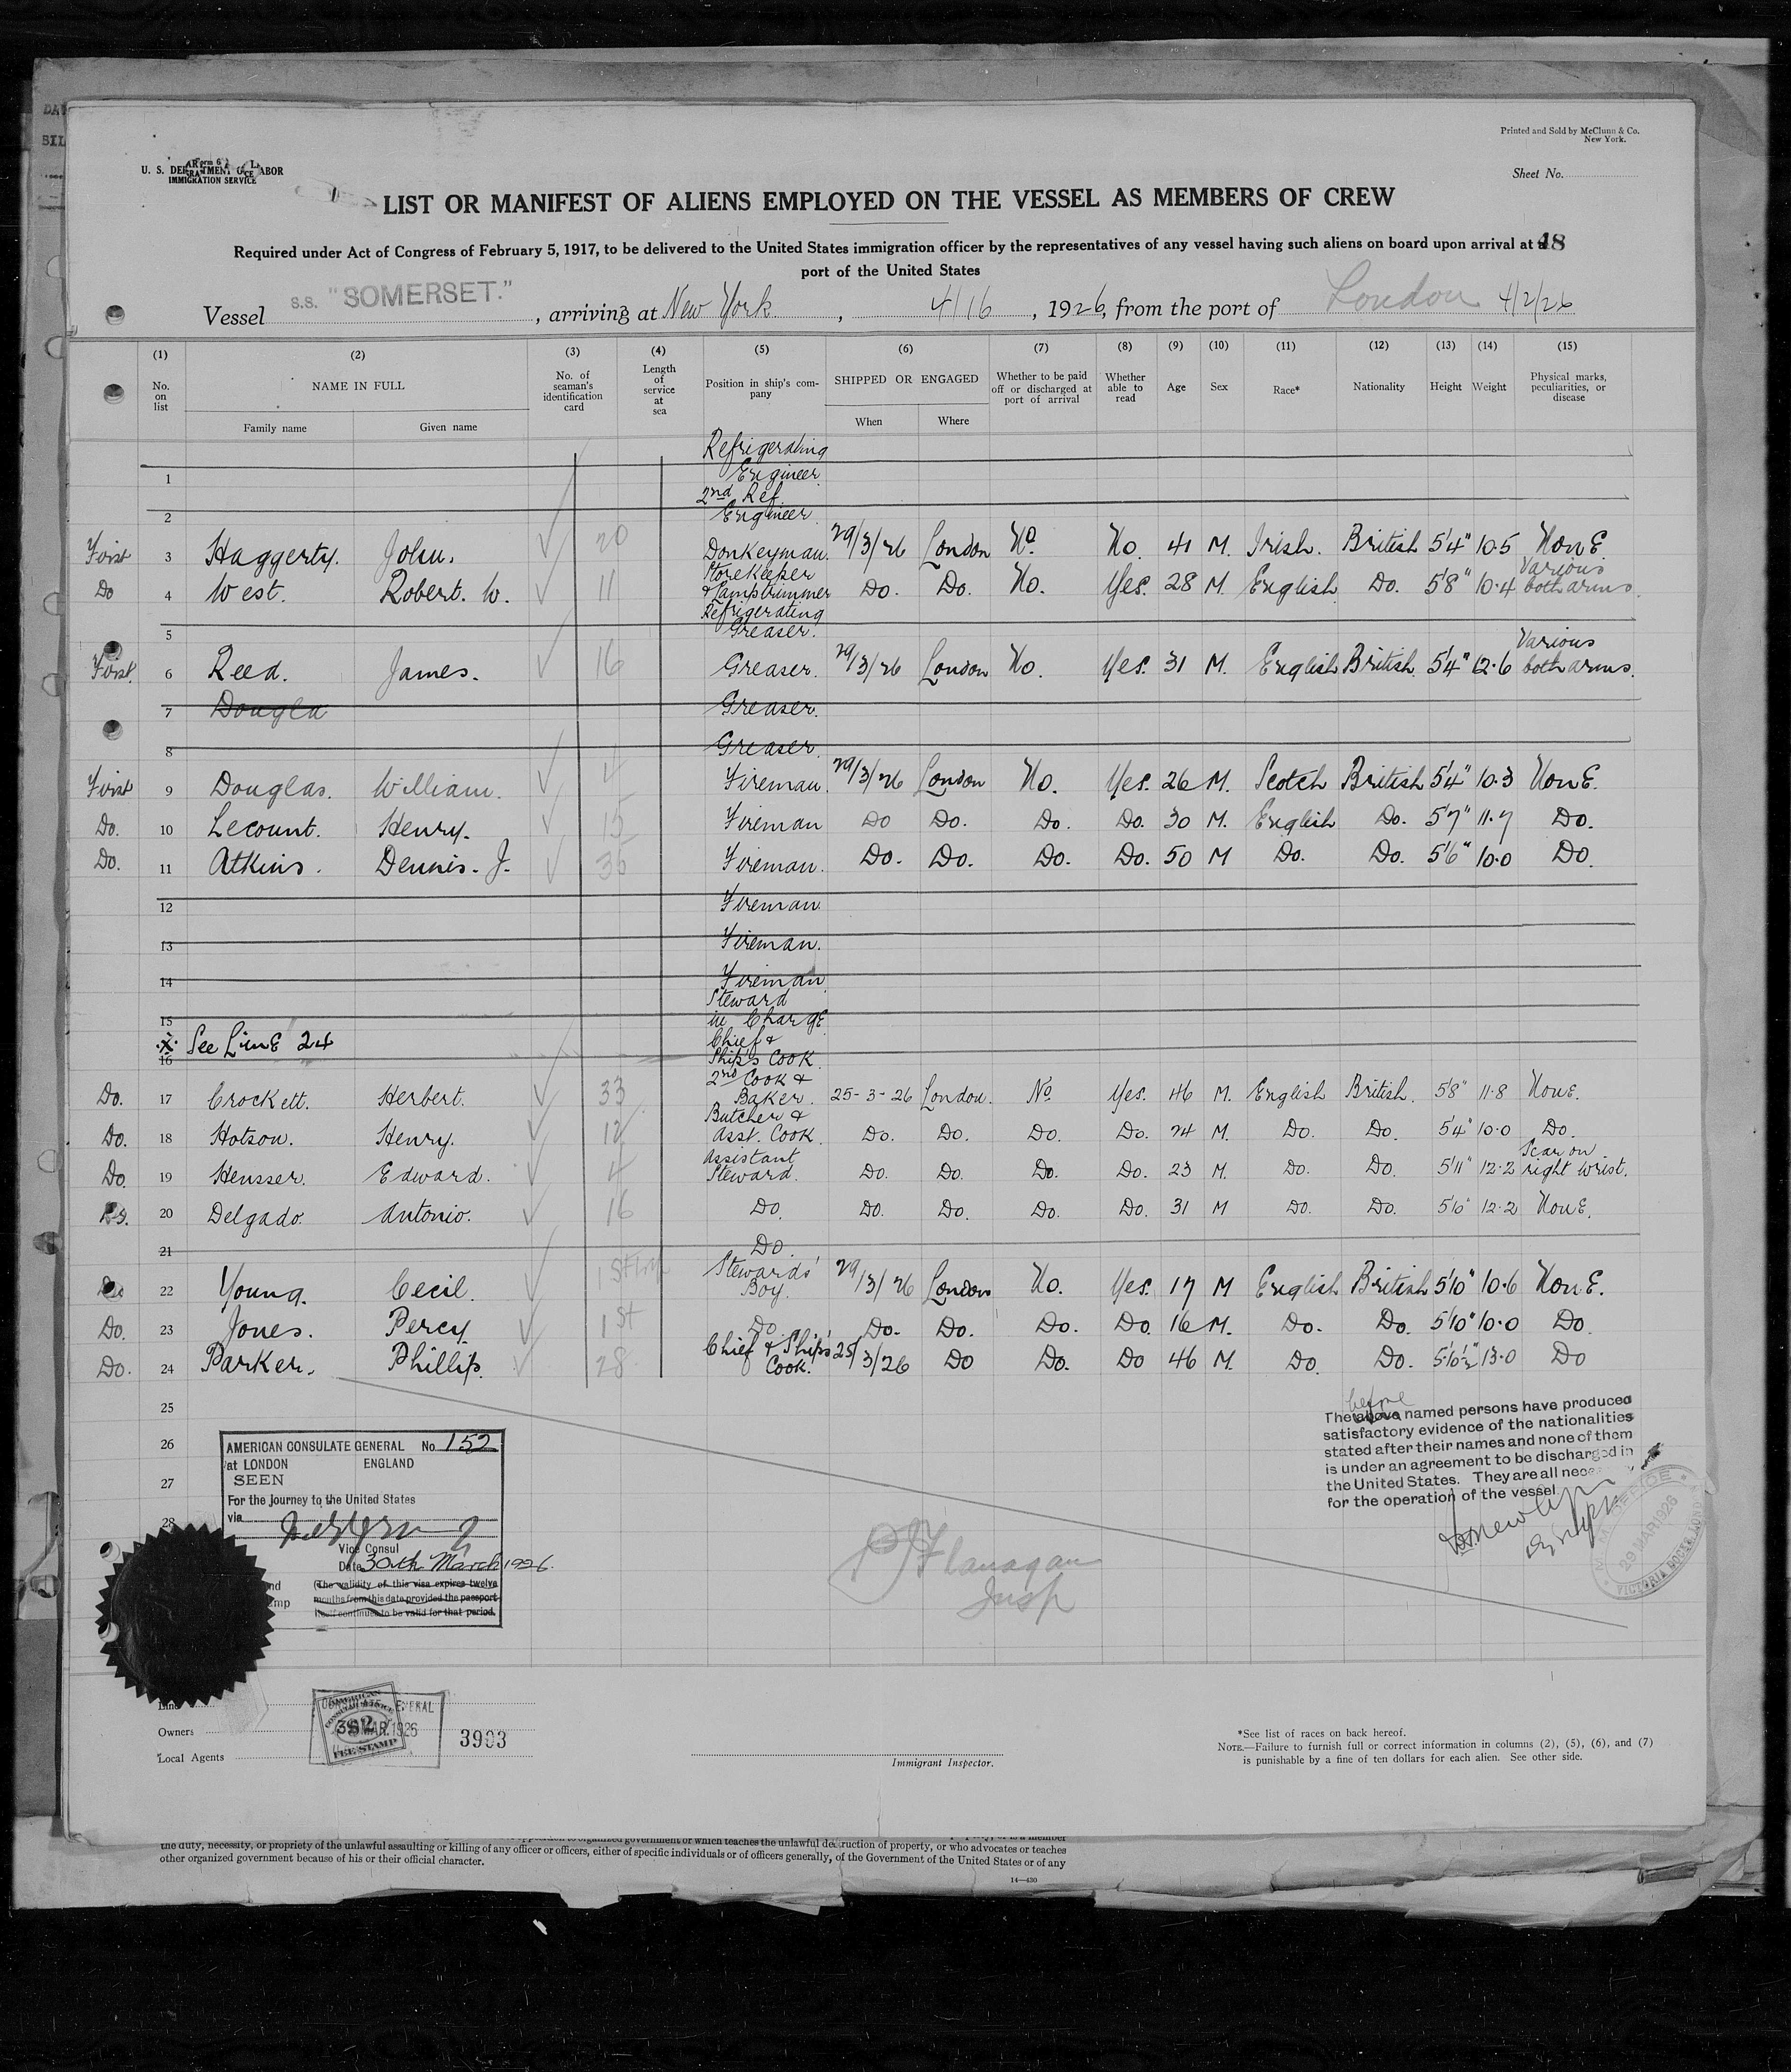 Printed and Sold by McClunn & Co.
New York.
U. S. DEPARTMENT OF LABOR
IMMIGRATION SERVICE
Sheet No.
LIST OR MANIFEST OF ALIENS EMPLOYED ON THE VESSEL AS MEMBERS OF CREW
Required under Act of Congress of February 5, 1917, to be delivered to the United States immigration officer by the representatives of any vessel having such aliens on board upon arrival at a
port of the United States
18
Vessel S.S. "SOMERSET." , arriving at New York , 4/16 , 1926, from the port of London 4/2/26
(1) (2) (3) (4) (5) (6) (7) (8) (9) (10) (11) (12) (13) (14) (15)
No. on list NAME IN FULL Family name Given name No. of seaman's identification card Length of service at sea Position in ship's company SHIPPED OR ENGAGED When Where Whether to be paid off or discharged at port of arrival Whether able to read Age Sex Race* Nationality Height Weight Physical marks, peculiarities, or disease
1 Refrigerating Engineer.
2 2nd Ref. Engineer.
First 3 Haggerty. John. 20 Donkeyman. 29/3/26 London No. No. 41 M. Irish. British 5'4" 10.5 NonE.
Do 4 West. Robert. W. 11 Storekeeper & Lamptrimmer Do. Do. No. Yes. 28 M. English Do. 5'8" 10.4 Various both arms.
5 Refrigerating Greaser.
First. 6 Reed. James. 16 Greaser. 29/3/26 London No. Yes. 31 M. English British. 5'4" 12.6 Various both arms.
7 Dougla Greaser.
8 Greaser.
First 9 Douglas. William. 4 Fireman. 29/3/26 London No. Yes. 26 M. Scotch British 5'4" 10.3 NonE.
Do. 10 Lecount. Henry. 15 Fireman Do Do. Do. Do. 30 M. English Do. 5'7" 11.7 Do.
Do. 11 Atkins. Dennis. J. 35 Fireman. Do. Do. Do. Do. 50 M Do. Do. 5'6" 10.0 Do.
12 Fireman.
13 Fireman.
14 Fireman.
15 Steward in ChargE
x See LinE 24
16 Chief & Ship's Cook.
Do. 17 Crockett. Herbert. 33 2nd Cook & Baker. 25-3-26 London. No. Yes. 46 M. English British. 5'8" 11.8 NonE.
Do. 18 Hotson. Henry. 12 Butcher & Asst. Cook. Do. Do. Do. Do. 24 M. Do. Do. 5'4" 10.0 Do.
Do. 19 Hensser. Edward. 4 Assistant Steward. Do. Do. Do. Do. 23 M. Do. Do. 5'11" 12.2 Scar on right wrist.
Do. 20 Delgado. Antonio. 16 Do. Do. Do. Do. Do. 31 M Do. Do. 5'6" 12.2 NonE.
21 Do.
Do 22 Young. Cecil. 1st trip Stewards' Boy. 29/3/26 London No. Yes. 17 M English British 5'10" 10.6 NonE.
Do. 23 Jones. Percy. 1st Do. Do. Do. Do. Do. 16 M. Do. Do. 5'10" 10.0 Do.
Do. 24 Parker. Phillip. 28 Chief & Ship's Cook. 25/3/26 Do Do. Do 46 M. Do. Do. 5'10½" 13.0 Do
25
26
27
28
before
The above named persons have produced
satisfactory evidence of the nationalities
stated after their names and none of them
is under an agreement to be discharged in
the United States. They are all nece
for the operation of the vessel
M. M. OFFICE
29 MAR 1926
VICTORIA DOCKS LONDON
AMERICAN CONSULATE GENERAL No 152
at LONDON ENGLAND
SEEN
For the journey to the United States
via
Vice Consul
Date 30th March 1926.
(The validity of this visa expires twelve
months from this date provided the passport
itself continues to be valid for that period.
P J Flanagan
Insp
Line
Owners
Local Agents
AMERICAN
CONSULAR SERVICE
382
FEE STAMP
MAR. 1926
3903
Immigrant Inspector.
*See list of races on back hereof.
NOTE.—Failure to furnish full or correct information in columns (2), (5), (6), and (7)
is punishable by a fine of ten dollars for each alien. See other side.
the duty, necessity, or propriety of the unlawful assaulting or killing of any officer or officers, either of specific individuals or of officers generally, of the Government of the United States or of any
other organized government because of his or their official character.
14—430